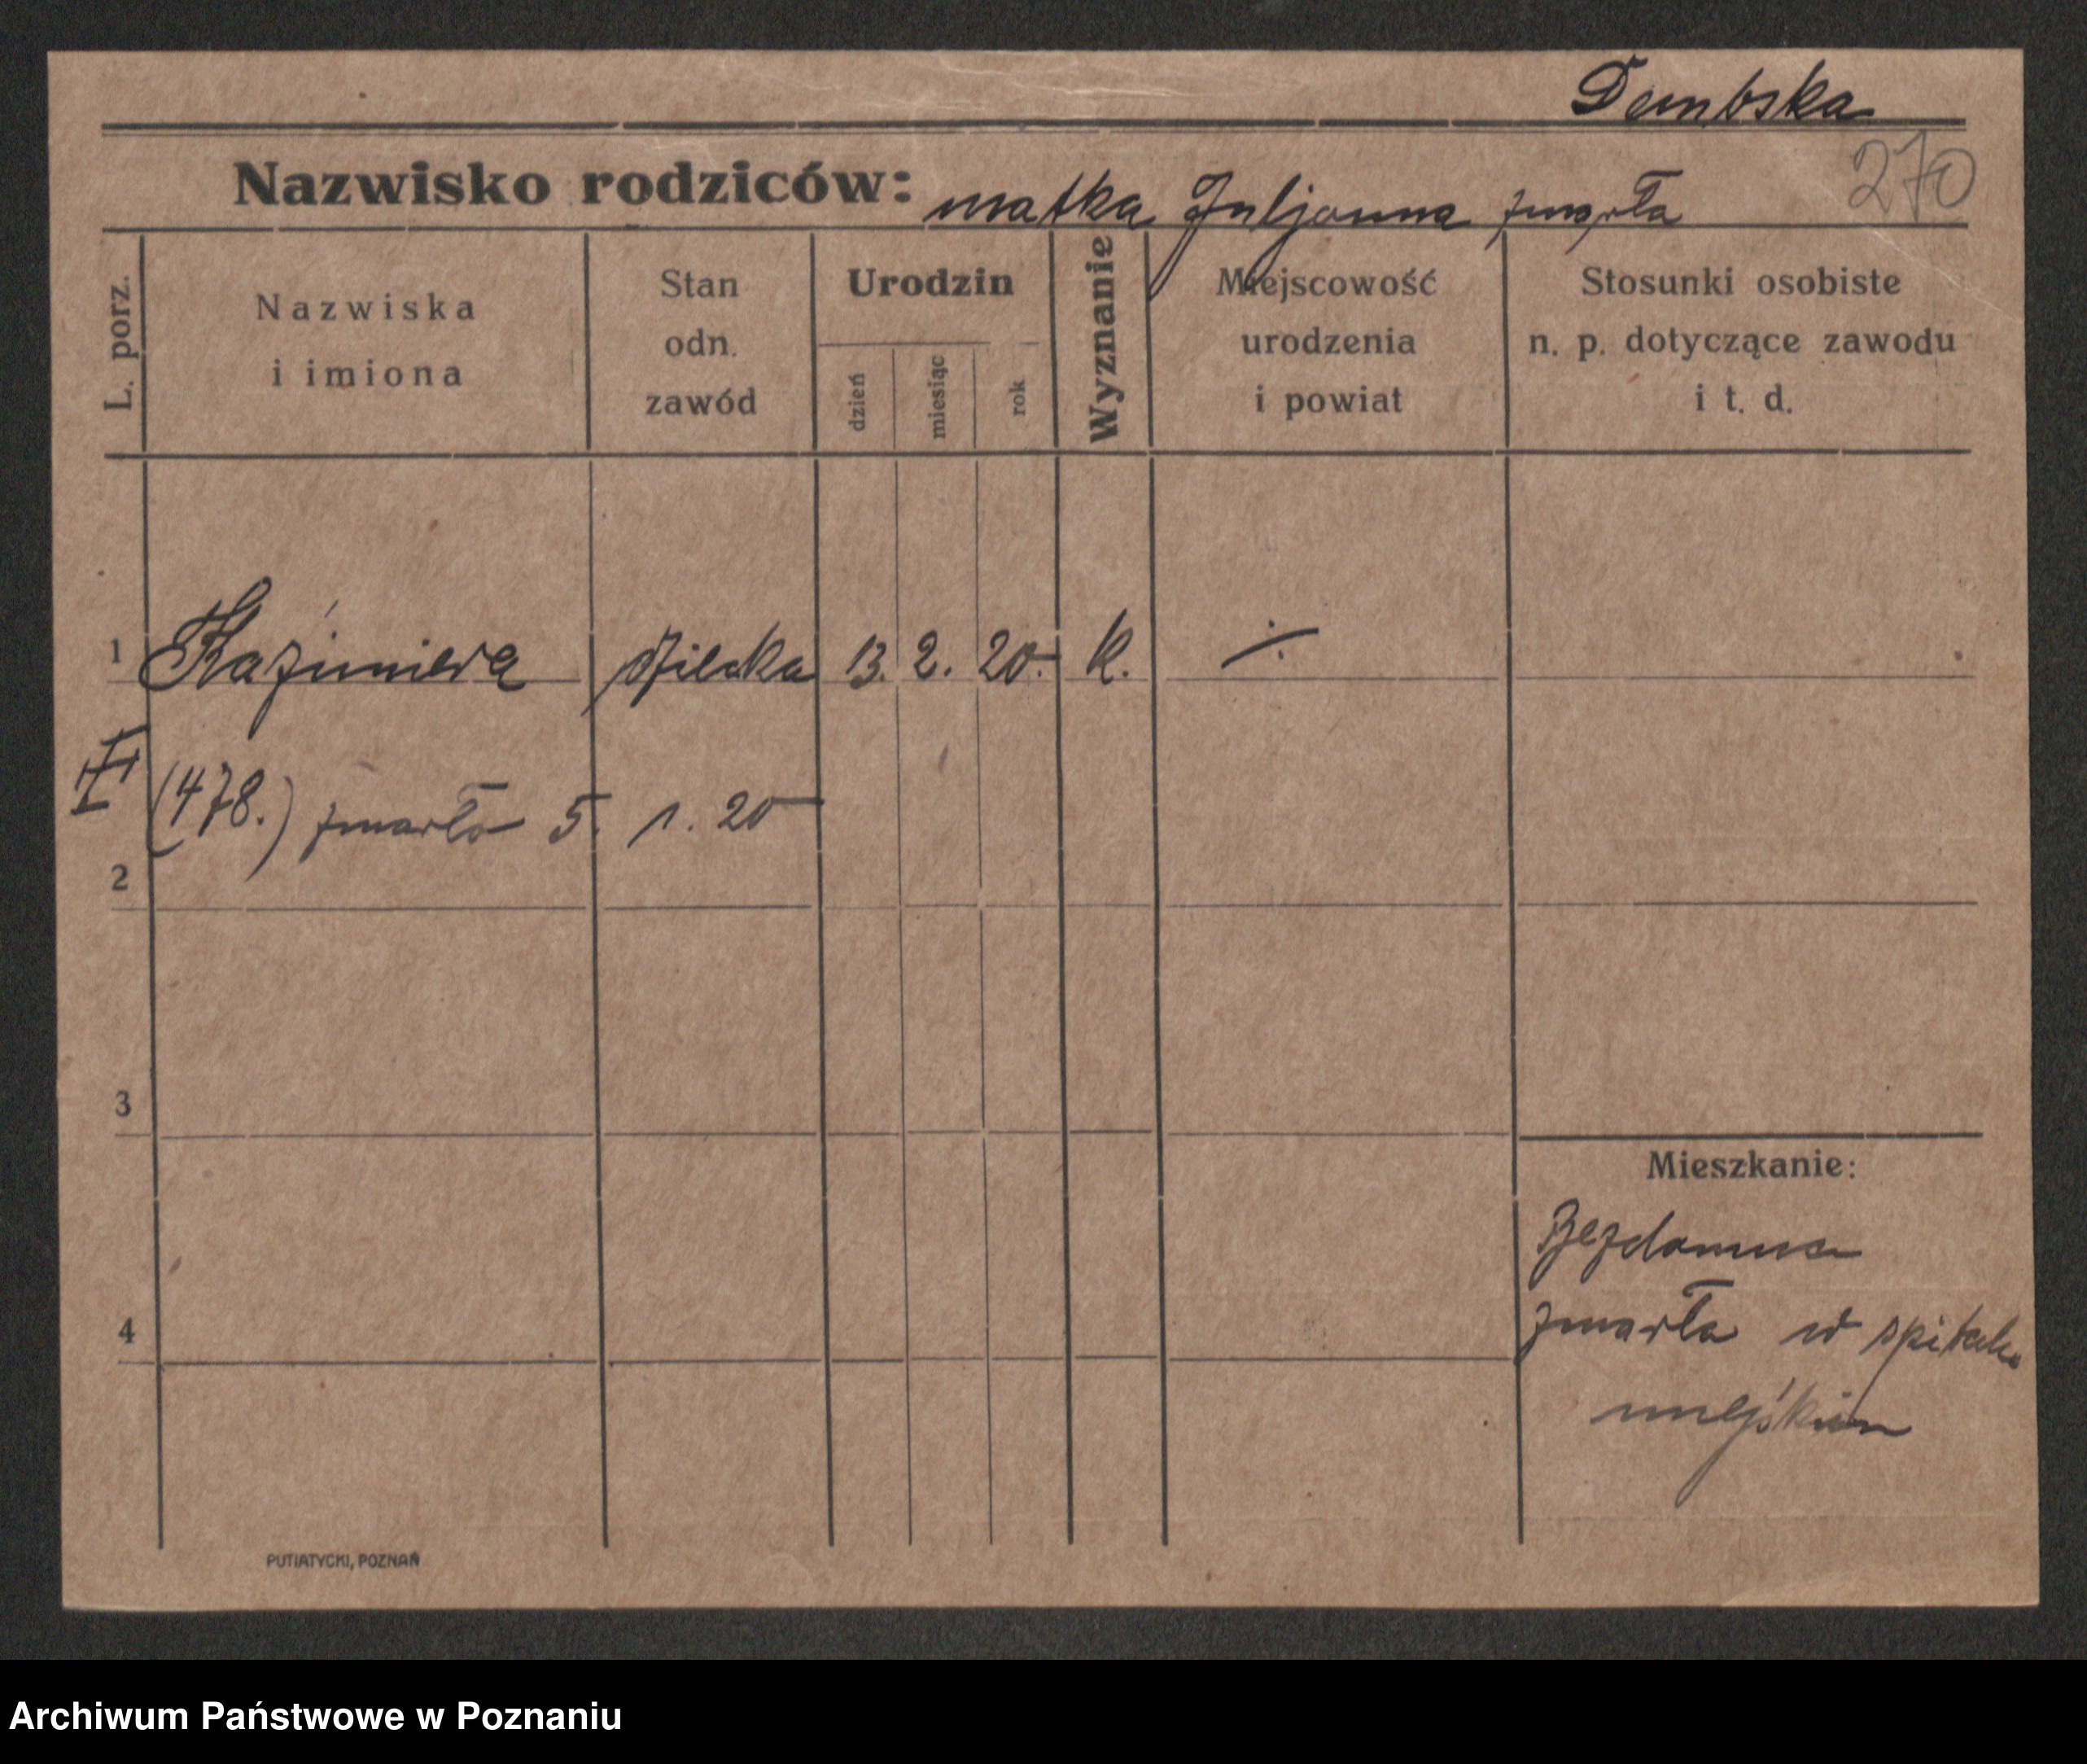 Dembska
Nazwisko rodziców: matka Juljanna zmarła
270
L. porz.
Nazwiska
i imiona
Stan
odn.
zawód
Urodzin
dzień
miesiąc
rok
Wyznanie
Miejscowość
urodzenia
i powiat
Stosunki osobiste
n. p. dotyczące zawodu
i t. d.
1 Kaźimiera dziecko 13. 2. 20. k. ·/.
(478.) zmarła 5. 1. 20
2
3
Mieszkanie:
Bezdomna
4
zmarła w spitalu
miejskim
PUTIATYCKI, POZNAŃ
Archiwum Państwowe w Poznaniu